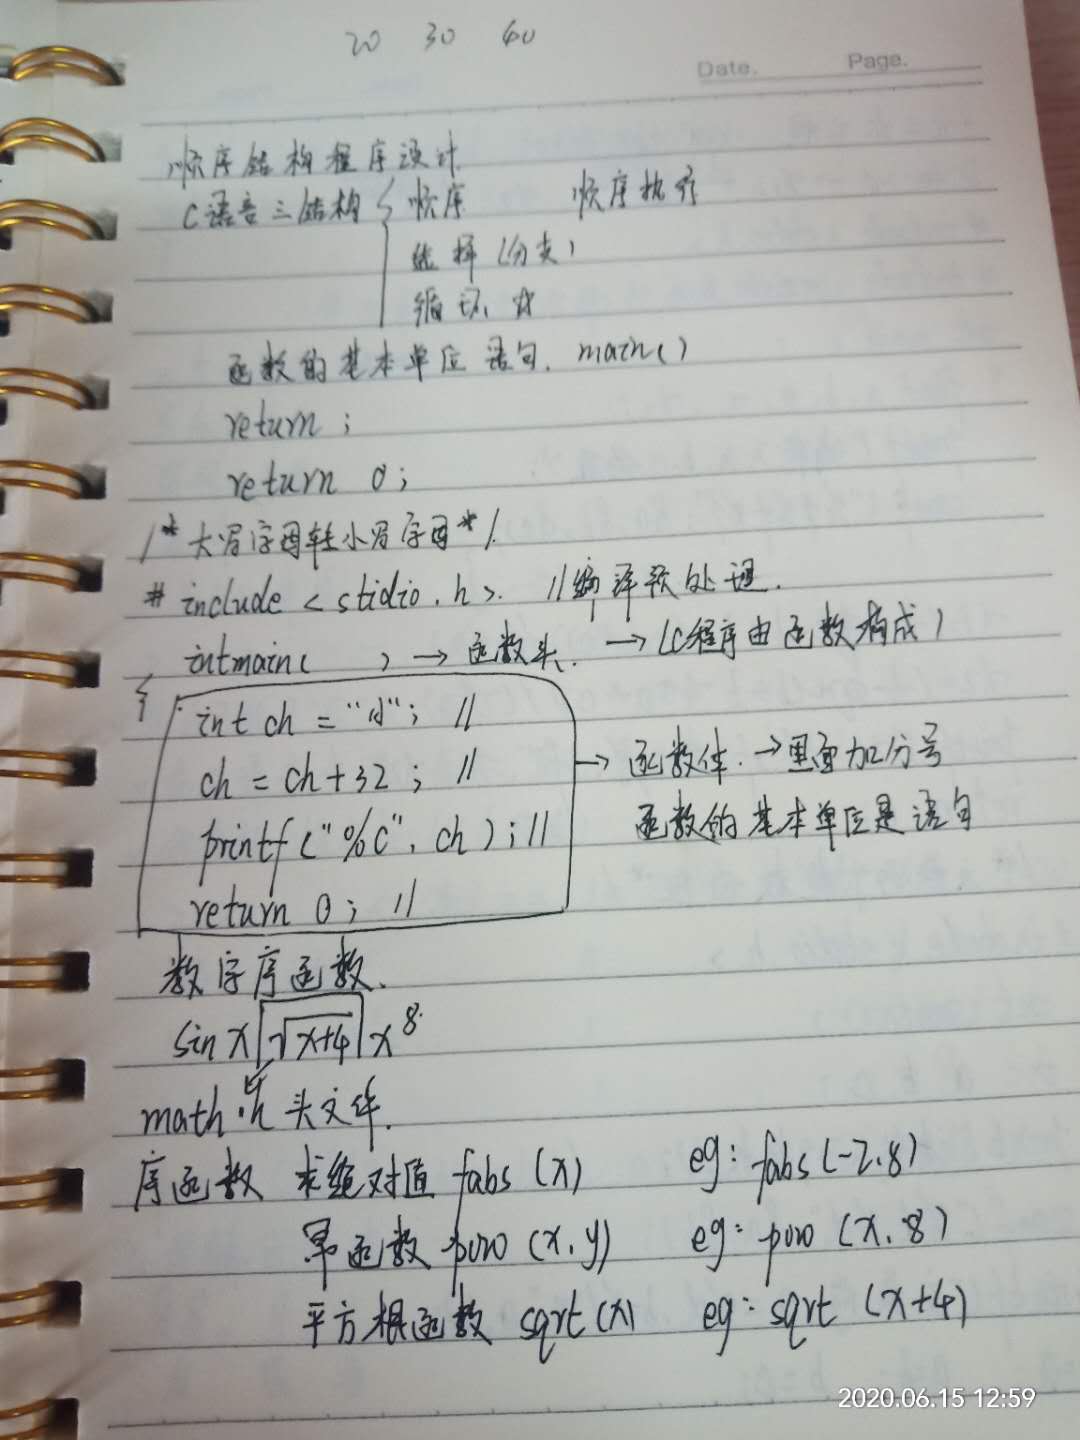 20 30 60
Date. Page.
顺序结构程序设计
C语言三结构 { 顺序 顺序执行
选择(分支)
循环 ☆
函数的基本单位 语句. main()
return ;
return 0;
/*大写字母转小写字母*/
# include < stidio.h>. //编译预处理.
intmain( ) → 函数头. → (C程序由函数构成)
{
int ch = ; //
ch = ch+32 ; // → 函数体. → 里面加分号
printf ("%c", ch) ; // 函数的基本单位是语句
return 0; //
数字序函数.
sin x √x+4 x⁸
math.h 头文件.
序函数 求绝对值 fabs (x) eg: fabs (-2.8)
幂函数 pow (x, y) eg: pow (x, 8)
平方根函数 sqrt (x) eg: sqrt (x+4)
2020.06.15 12:59